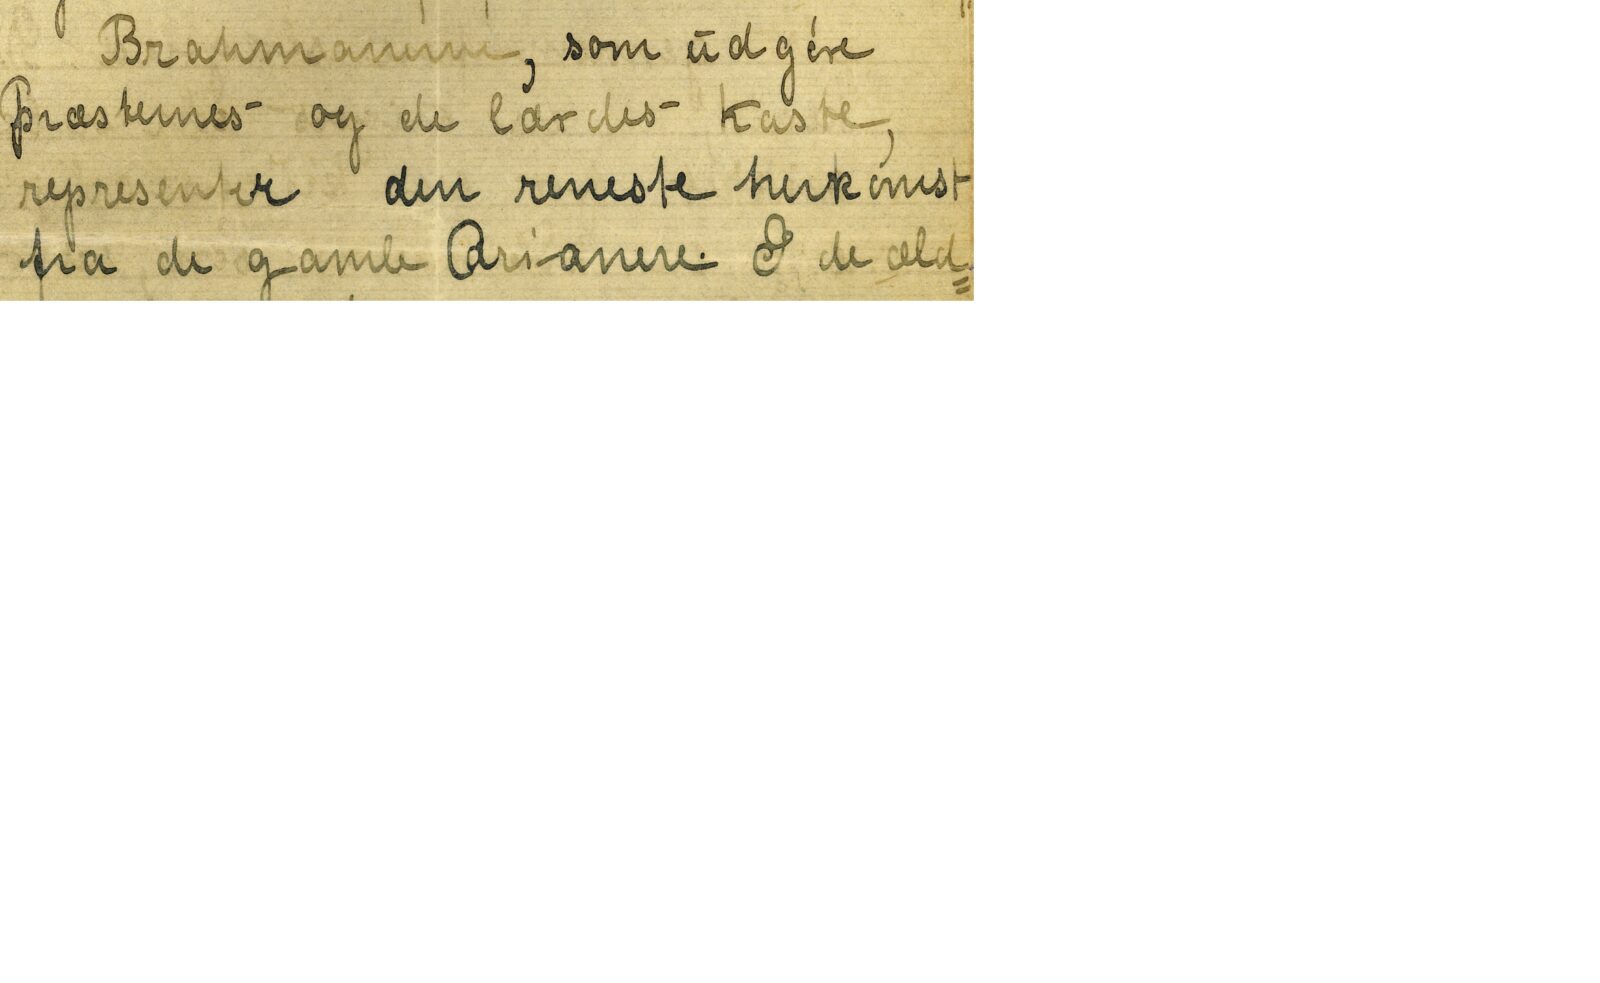 Brahmanerne, som ūdgöre
Præsternes og de lærdes kaste,
represente­r den reneste herkomst
fra de gamle Arianere. I de æld=